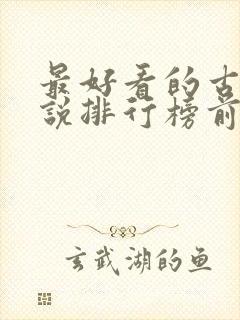 最好看的古
說排行榜前
玄武湖的鱼